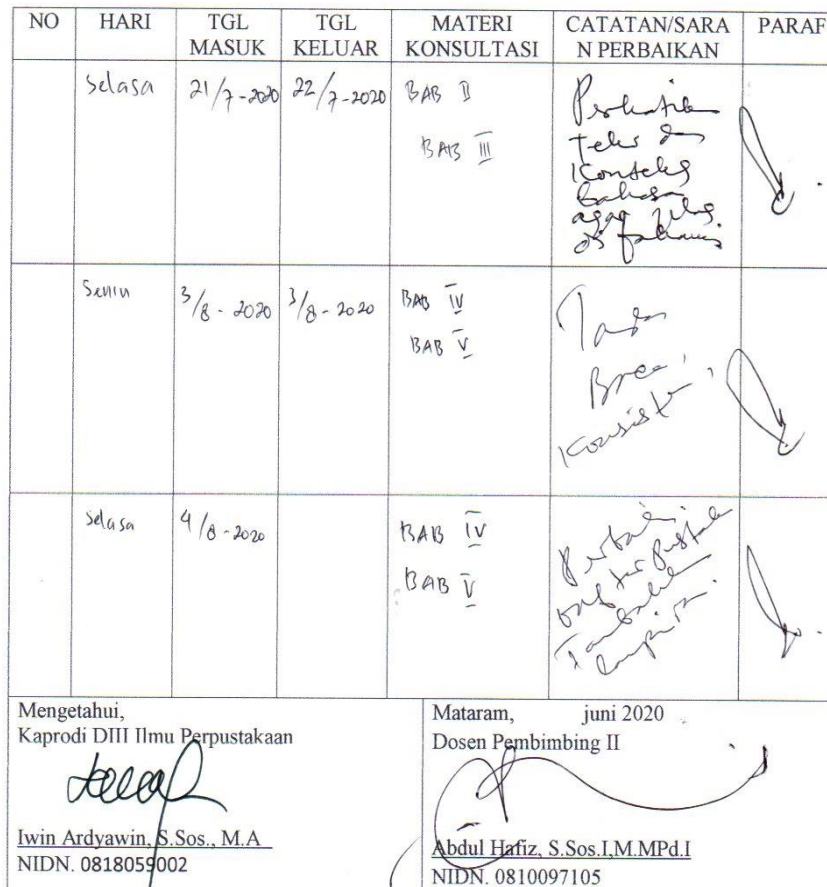 NO HARI TGL MASUK TGL KELUAR MATERI KONSULTASI CATATAN/SARAN PERBAIKAN PARAF
Selasa 21/7-2020 22/7-2020 BAB II
BAB III
Perhatikan
teks dan
Konteks
bahasa
agar jelas
di fahami
Senin 3/8-2020 3/8-2020 BAB IV
BAB V
Tanda
Baca,
Konsisten
Selasa 4/8-2020 BAB IV
BAB V
Perbaiki
daftar pustaka
Tambahkan
lampiran.
Mengetahui,
Kaprodi DIII Ilmu Perpustakaan
Iwin Ardyawin, S.Sos., M.A
NIDN. 0818059002
Mataram, juni 2020
Dosen Pembimbing II
Abdul Hafiz, S.Sos.I,M.MPd.I
NIDN. 0810097105